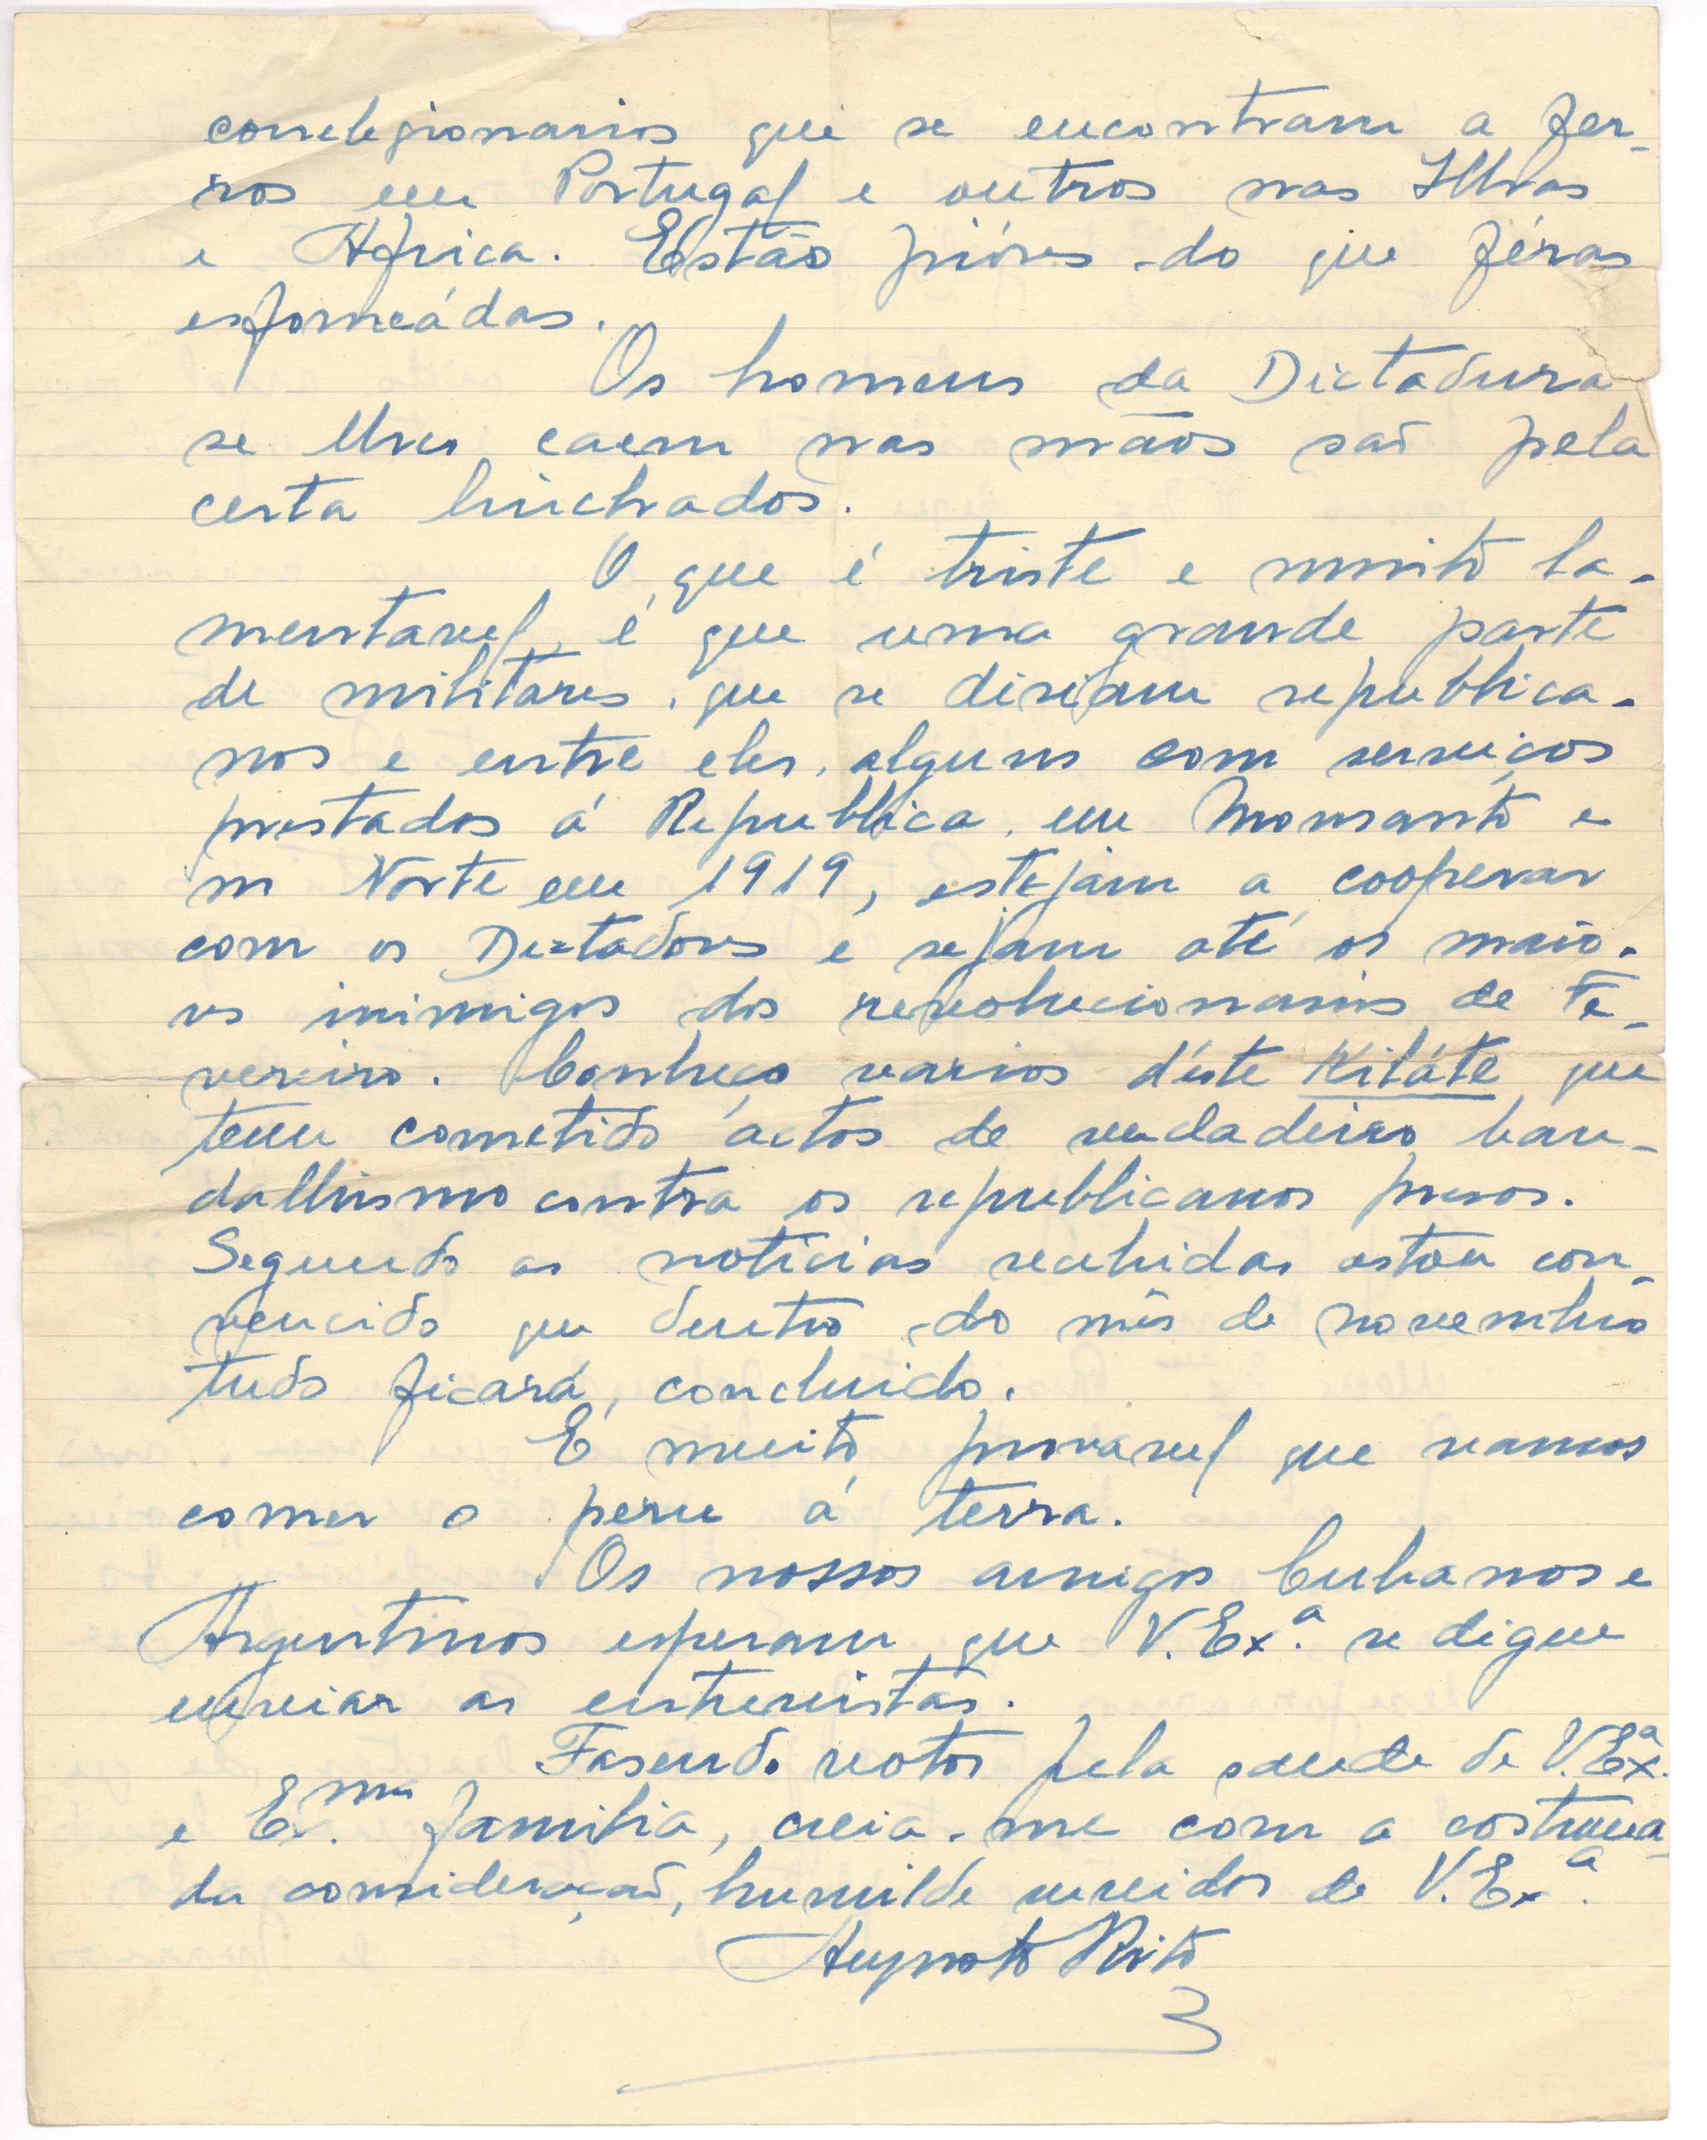 correlegionarios que se encontram a fer-
ros em Portugal e outros nas Ilhas
e Africa. Estão pióres do que féras
esfomeádas.
Os homens da Dictadura
se lhes caem nas mãos são pela
certa linchados.
O que é triste e muito la-
mentavel, é que uma grande parte
de militares, que se disejam republica-
nos e entre eles, alguns com serviços
prestados á Republica, em Monsanto e
no Norte em 1919, estejam a cooperar
com os Dictadores e sejam até os maio-
res inimigos dos revolucionarios de Fe-
vereiro. Conheço varios d'éste Kiláte que
tem cometido áctos de verdadeiro ban-
dalhismo contra os republicanos presos.
Segundo as noticias recebidas estou con-
vencido que dentro do mês de novembro
tudo ficará, concluido.
É muito provavel que vamos
comer o peru á terra.
Os nossos amigos Cubanos e
Argentinos esperam que V. Ex.ª se digne
enviar as entrevistas.
Fasendo votos pela saude de V. Exª.
e Ex.mas familia, creia-me com a costuma-
da consideração, humilde servidor de V. Exª.
Augusto Pinto